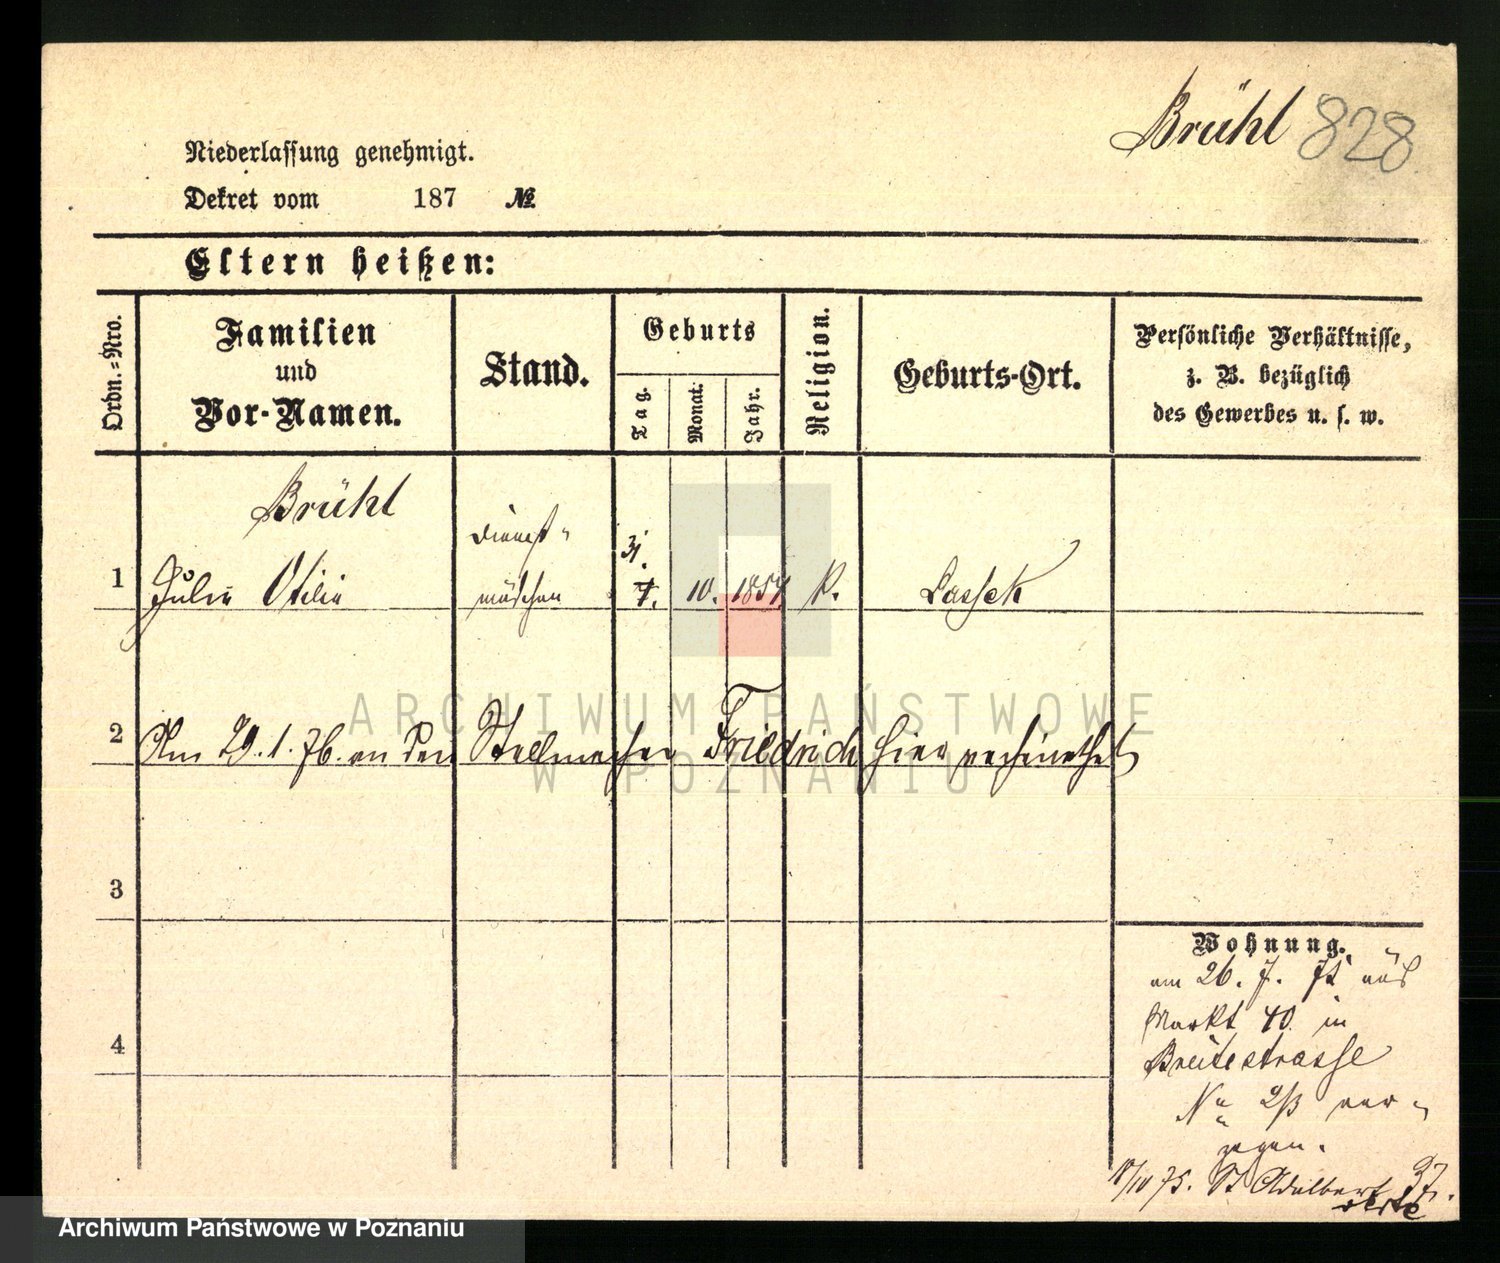 Brühl 828
Niederlassung genehmigt.
Dekret vom 187 №
Eltern heißen:
Ordn.-Nro.
Familien
und
Vor-Namen.
Stand.
Geburts
Tag.
Monat.
Jahr.
Religion.
Geburts-Ort.
Persönliche Verhältnisse,
z. B. bezüglich
des Gewerbes u. s. w.
Brühl
Dienst-
31.
1 Julie Otilie mädchen 7. 10. 1854 K. Lassek
2 Am 29. 1. 76. an den Stellmacher Friedrich hier verheirathet
3
4
Wohnung.
am 26. 7. 75 aus
Markt 40 in
Breitestrasse
No 23 ver-
zogen.
18/10 75. St Adalbert 37.
verte
ARCHIWUM PAŃSTWOWE
W POZNANIU
Archiwum Państwowe w Poznaniu